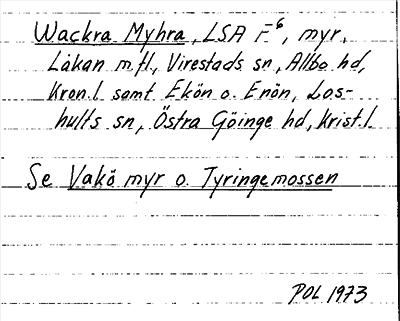 Wackra Myhra, LSA F⁶, myr,
Låkan m.fl., Virestads sn, Allbo hd,
Kron.l samt Ekön o. Enön, Los-
hults sn, Östra Göinge hd, Krist.l.
Se Vakö myr o. Tyringemossen
POL 1973